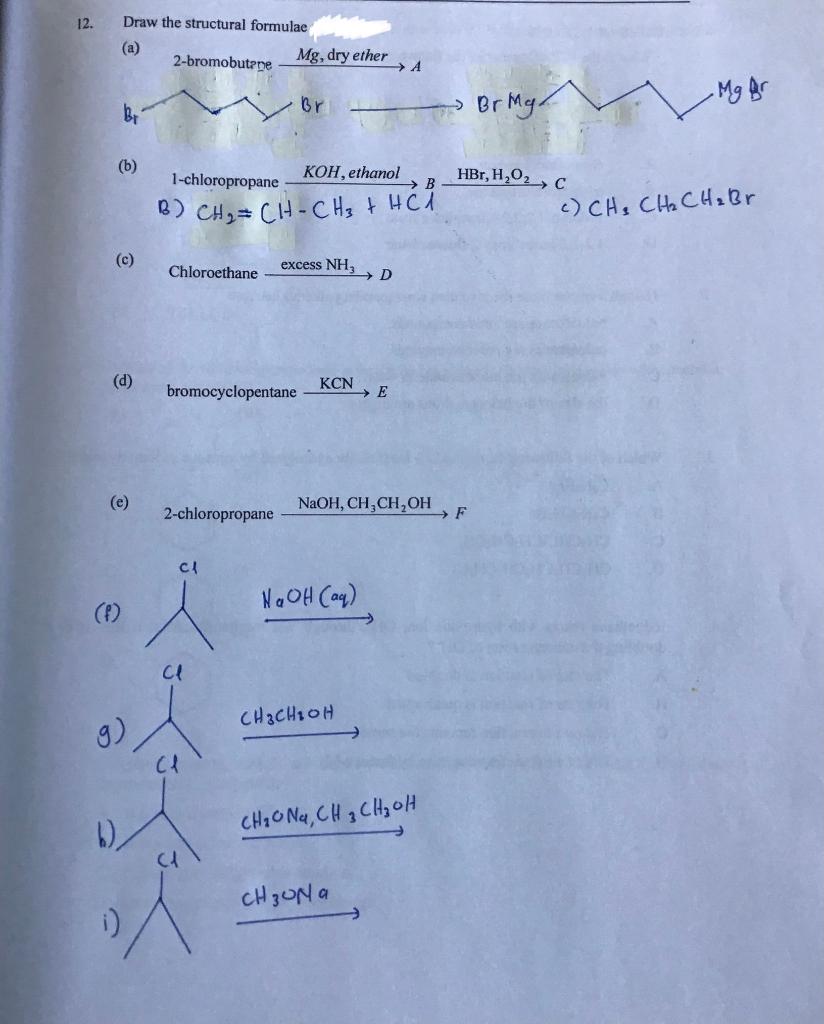 12. Draw the structural formulae
(a) 2-bromobutane Mg, dry ether → A
Br Br → BrMg MgBr
(b) 1-chloropropane KOH, ethanol → B HBr, H₂O₂ → C
B) CH₂=CH-CH₃ + HCl c) CH₃ CH₂CH₂Br
(c) Chloroethane excess NH₃ → D
(d) bromocyclopentane KCN → E
(e) 2-chloropropane NaOH, CH₃CH₂OH → F
Cl
(f) NaOH (aq) →
Cl
g) CH3CH2OH →
Cl
h) CH₃ONa, CH₃CH₂OH →
Cl
i) CH3ONa →